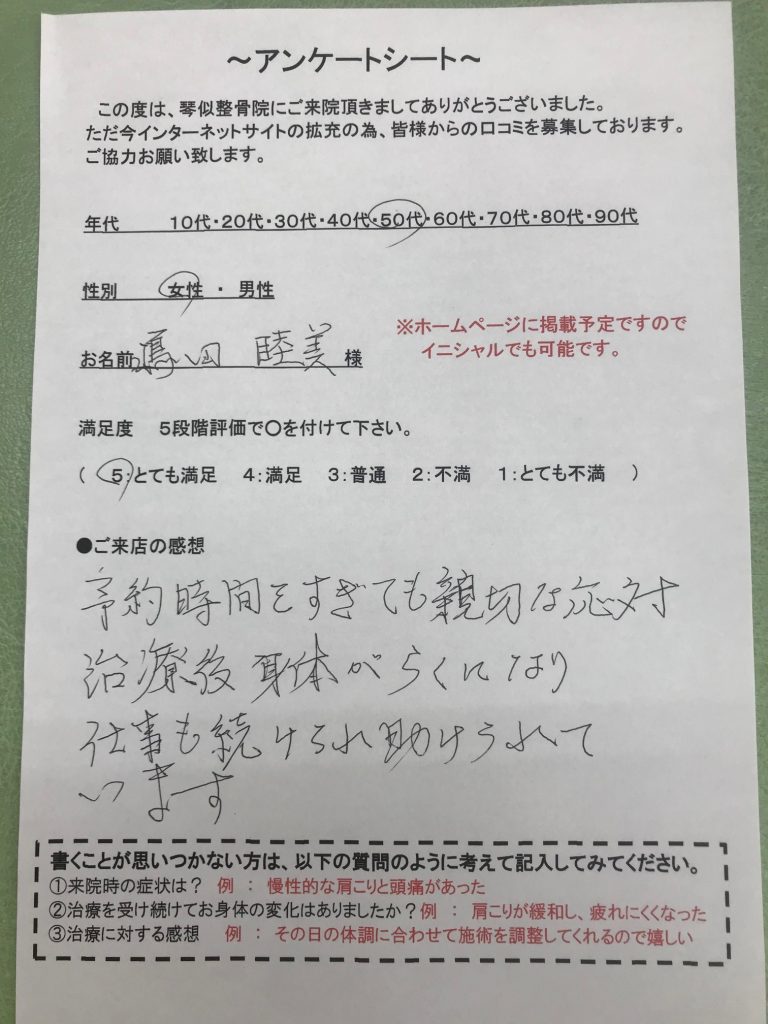 ～アンケートシート～
この度は、琴似整骨院にご来院頂きましてありがとうございました。
ただ今インターネットサイトの拡充の為、皆様からの口コミを募集しております。
ご協力お願い致します。
年代 10代・20代・30代・40代・50代・60代・70代・80代・90代
性別 女性 ・ 男性
※ホームページに掲載予定ですので
イニシャルでも可能です。
お名前 田 睦美 様
満足度 5段階評価で〇を付けて下さい。
（ 5：とても満足 4：満足 3：普通 2：不満 1：とても不満 ）
●ご来店の感想
予約時間をすぎても親切な応対
治療後身体がらくになり
仕事も続けられ助けられて
います
書くことが思いつかない方は、以下の質問のように考えて記入してみてください。
①来院時の症状は？ 例 ： 慢性的な肩こりと頭痛があった
②治療を受け続けてお身体の変化はありましたか？例 ： 肩こりが緩和し、疲れにくくなった
③治療に対する感想 例 ： その日の体調に合わせて施術を調整してくれるので嬉しい